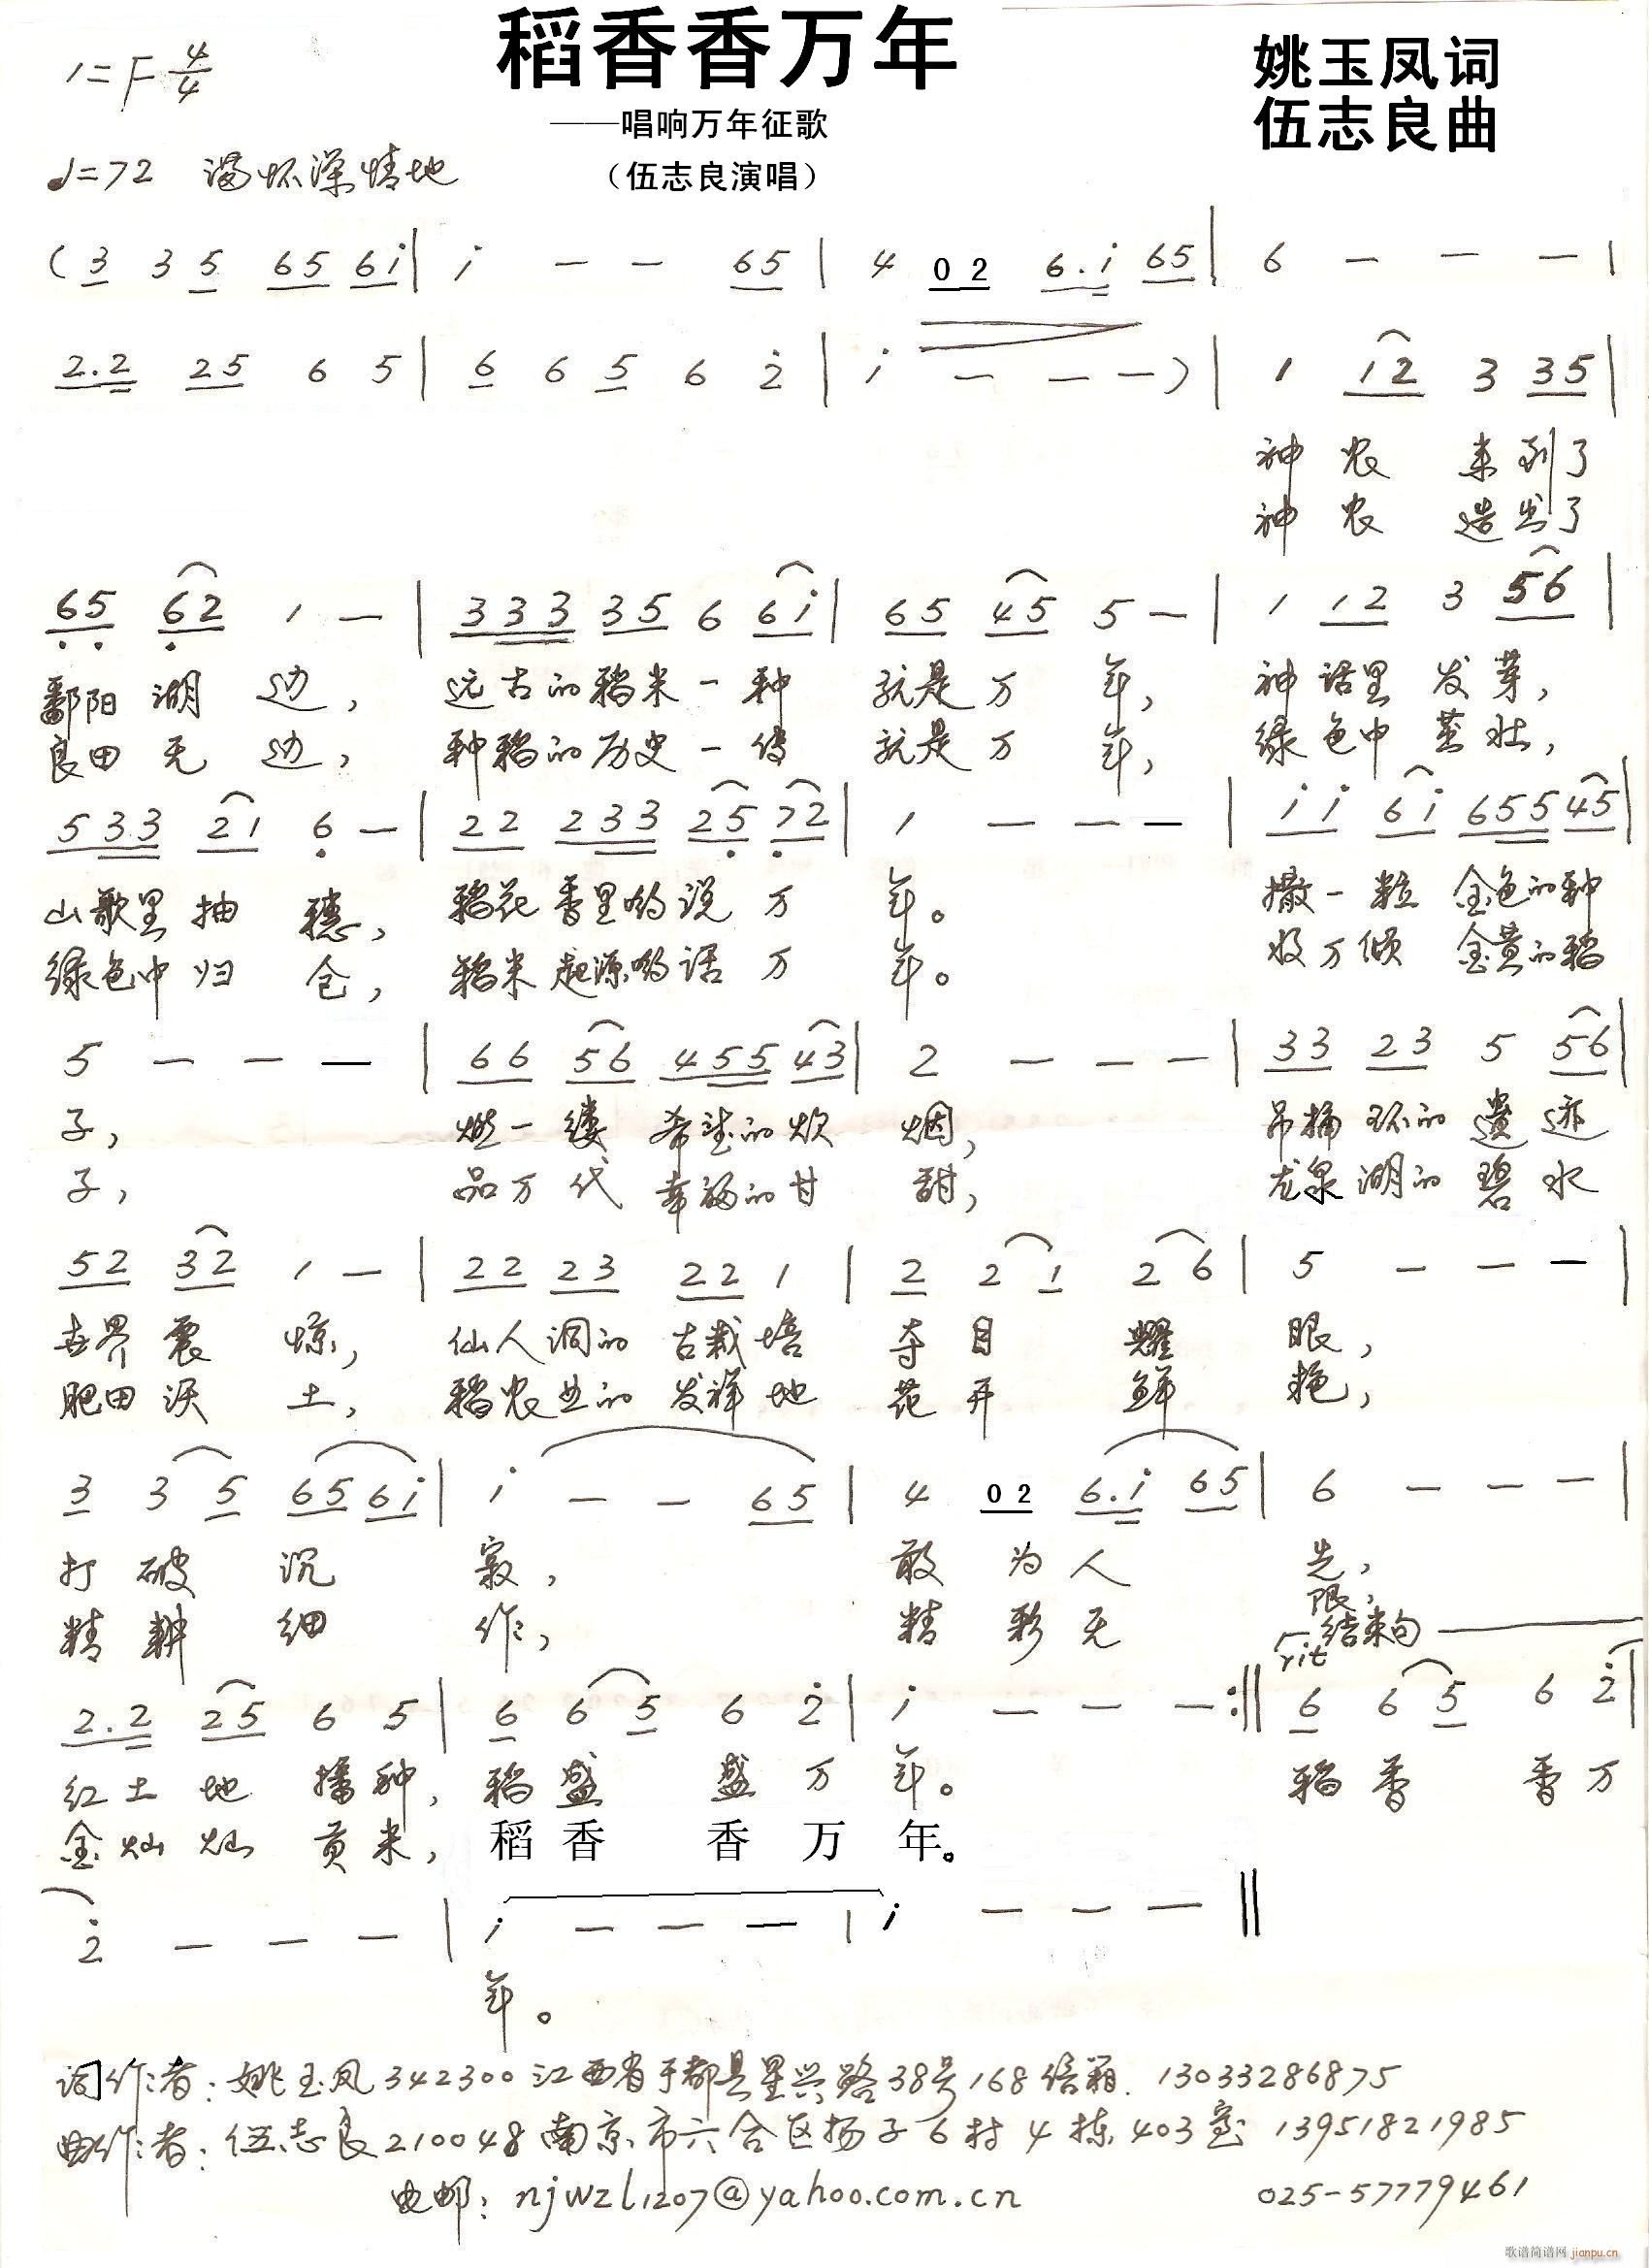 稻香香万年
1=F 4/4
姚玉凤词
——唱响万年征歌
伍志良曲
♩=72 满怀深情地
(伍志良演唱)
(3 3 5 65 6i| i — — 65 | 4 02 6.i 65| 6 — — — |
2.2 25 6 5 | 6 6 5 6 2 | i — — —)| 1 12 3 35 |
神农 来到了
神农 造出了
65 62 1 — | 333 35 6 6i | 65 45 5 — | 1 12 3 56 |
鄱阳湖 边, 远古的稻米一种 就是万 年, 神话里 发芽,
良田无 边, 种稻的历史一传 就是万 年, 绿色中 茁壮,
533 21 6 — | 22 233 25 72 | 1 — — — | ii 6i 655 45 |
山歌里抽 穗, 稻花香里哟说万 年。 撒一粒 金色的种
绿色中归 仓, 稻米起源哟话万 年。 收万倾 金黄的稻
5 — — — | 66 56 455 43 | 2 — — — | 33 23 5 56 |
子, 燃一缕 希望的炊 烟, 吊桶环的遗迹
子, 品万代 幸福的甘 甜, 龙泉湖的碧水
52 32 1 — | 22 23 22 1 | 2 2 1 2 6 | 5 — — — |
世界震 惊, 仙人洞的古栽培 夺目 耀 眼,
肥田沃 土, 稻农业的发祥地 花开 鲜 艳,
3 3 5 65 6i | i — — 65 | 4 02 6.i 65 | 6 — — — |
打破 沉 寂, 敢为人 先,
精耕 细 作, 精彩无 限;
rit 结束句
2.2 25 6 5 | 6 6 5 6 2 | i — — — :‖ 6 6 5 6 2 |
红土地 播种, 稻盛 盛万 年。 稻香 香万
金灿灿 贡米, 稻香 香万 年。
2 — — — | i — — — | i — — — ‖
年。
词作者: 姚玉凤 342300 江西省于都县星兴路38号168信箱. 13033286875
曲作者: 伍志良 210048 南京市六合区扬子6村4栋403室 13951821985
电邮: njwzl1207@yahoo.com.cn 025-57779461
歌谱简谱网 jianpu.cn